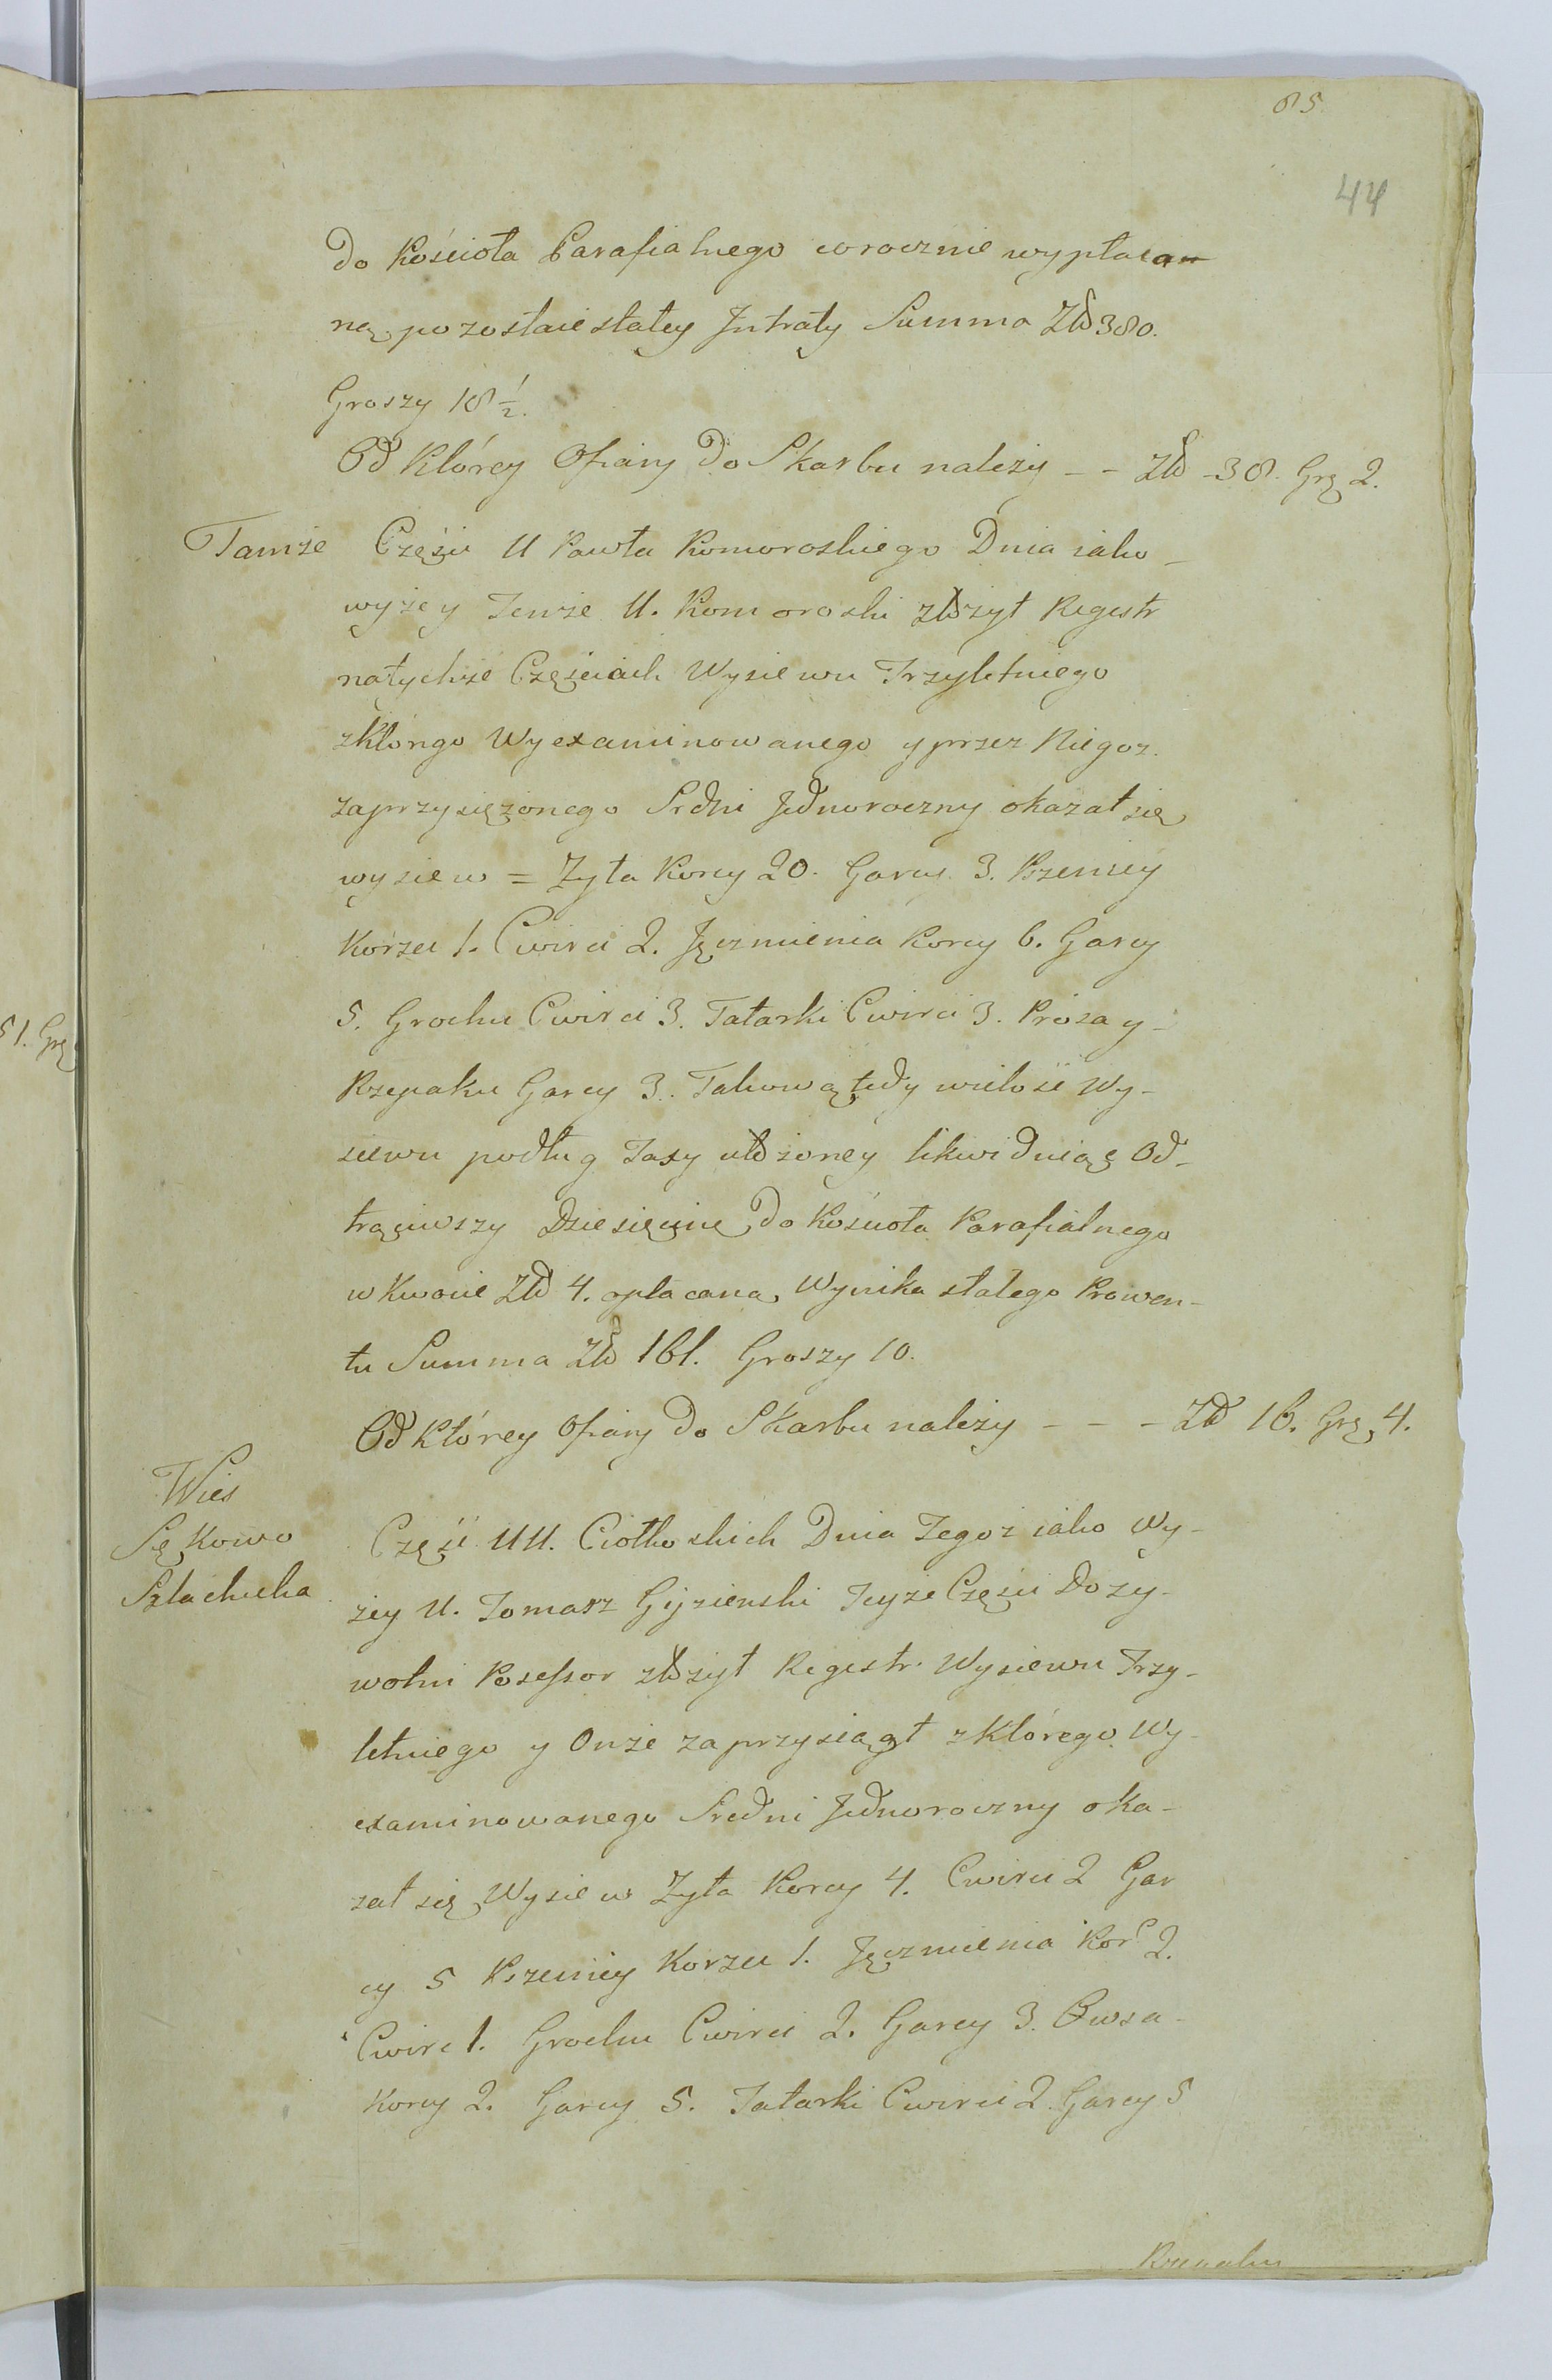 85
44
Do Kościoła Parafialnego corocznie wypłaca=
ną pozostaie stałey Jntraty Summa Zło 380.
Groszy 18 1/2.
Od Którey Ofiary do Skarbu należy - - Zło - 38. Grę 2.
Tamże Części U Pawła Komoroskiego Dnia iako -
wyżey Tenże U. Komoroski złożył Regestr
natychże Częściach Wysiewu Trzyletniego
zktórngo Wyexaminowanego y przez Niegoz.
zaprzysiężonego Srdni Jednoroczny okazał się
wysiew = Zyta Korcy 20. Garcy 3. Pszenicy
Korzec 1. Cwirci 2. Jęczmienia Korcy 6. Garcy
5. Grochu Cwirci 3. Tatarki Cwirci 3. Prosa y -
Rzepaku Garcy 3. Takową tedy wielość Wy-
siewu podług Taxy ułożoney likwiduiąc Od-
trąciwszy Dziesięcinę do Kościoła Parafialnego
w Kwocie Zło 4. opłacaną Wynika stałego Prowen-
tu Summa Zło 161. Groszy 10.
Od Którey Ofiary do Skarbu należy - - - Zło 16. Grę 4.
Wies
Sękowo
Szlachecka
Część UU. Ciołkoskich Dnia Tegoż iako Wy-
żey U. Tomasz Giżienski Teyże Części Doży-
wotni Posessor złożył Regestr Wysiewu Trzy-
letniego y Onże zaprzysiągł z Którego Wy-
examinowanego Sredni Jednoroczny oka-
zał się Wysiew Zyta Korcy 4. Cwirci 2 Gar
cy 5 Pszenicy Korzec 1. Jęczmienia Korc 2.
Cwirc 1. Grochu Cwirci 2. Garcy 3. Owsa -
Korcy 2. Garcy 5. Tatarki Cwirci 2. Garcy 5
Rzepaku
51. Grę